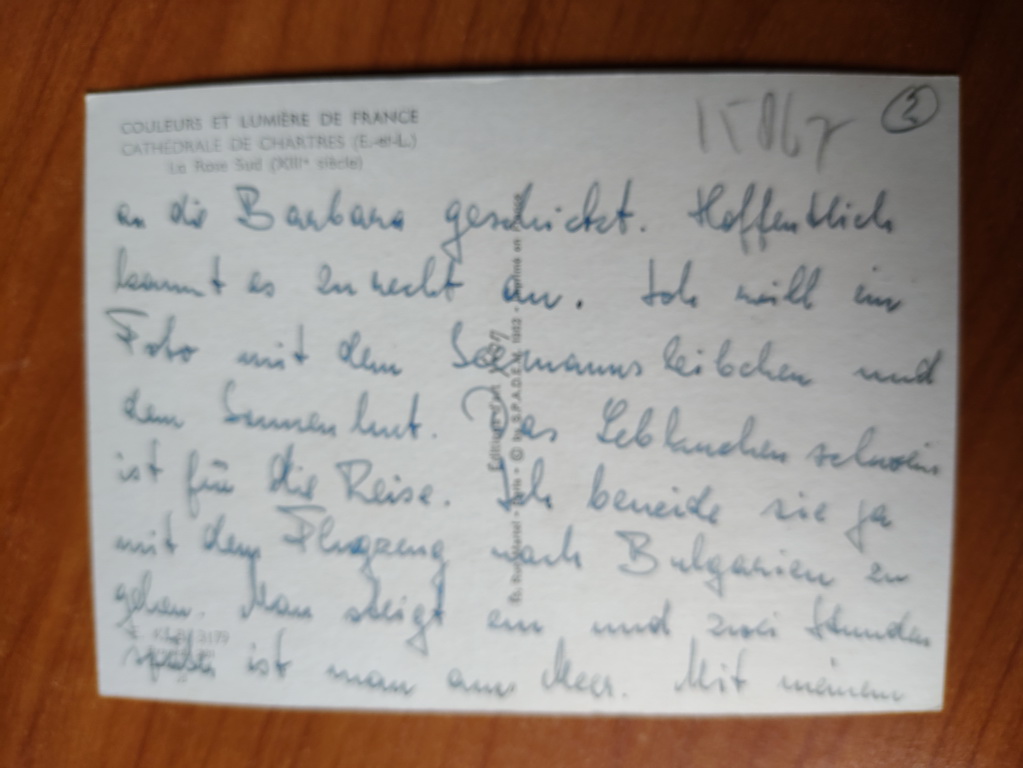 COULEURS ET LUMIÈRE DE FRANCE
CATHÉDRALE DE CHARTRES (E.-et-L.)
La Rose Sud (XIIIe siècle)
2
an die Barbara geschickt. Hoffentlich
kommt es zurecht an. Ich will ein
Foto mit dem Seemannsleibchen und
dem Sonnenhut. Das Lebkuchenschwein
ist für die Reise. Ich beneide sie ja
mit dem Flugzeug nach Bulgarien zu
gehen. Man steigt ein und zwei Stunden
später ist man am Meer. Mit meinem
3179
© by S.P.A.D.E.M.